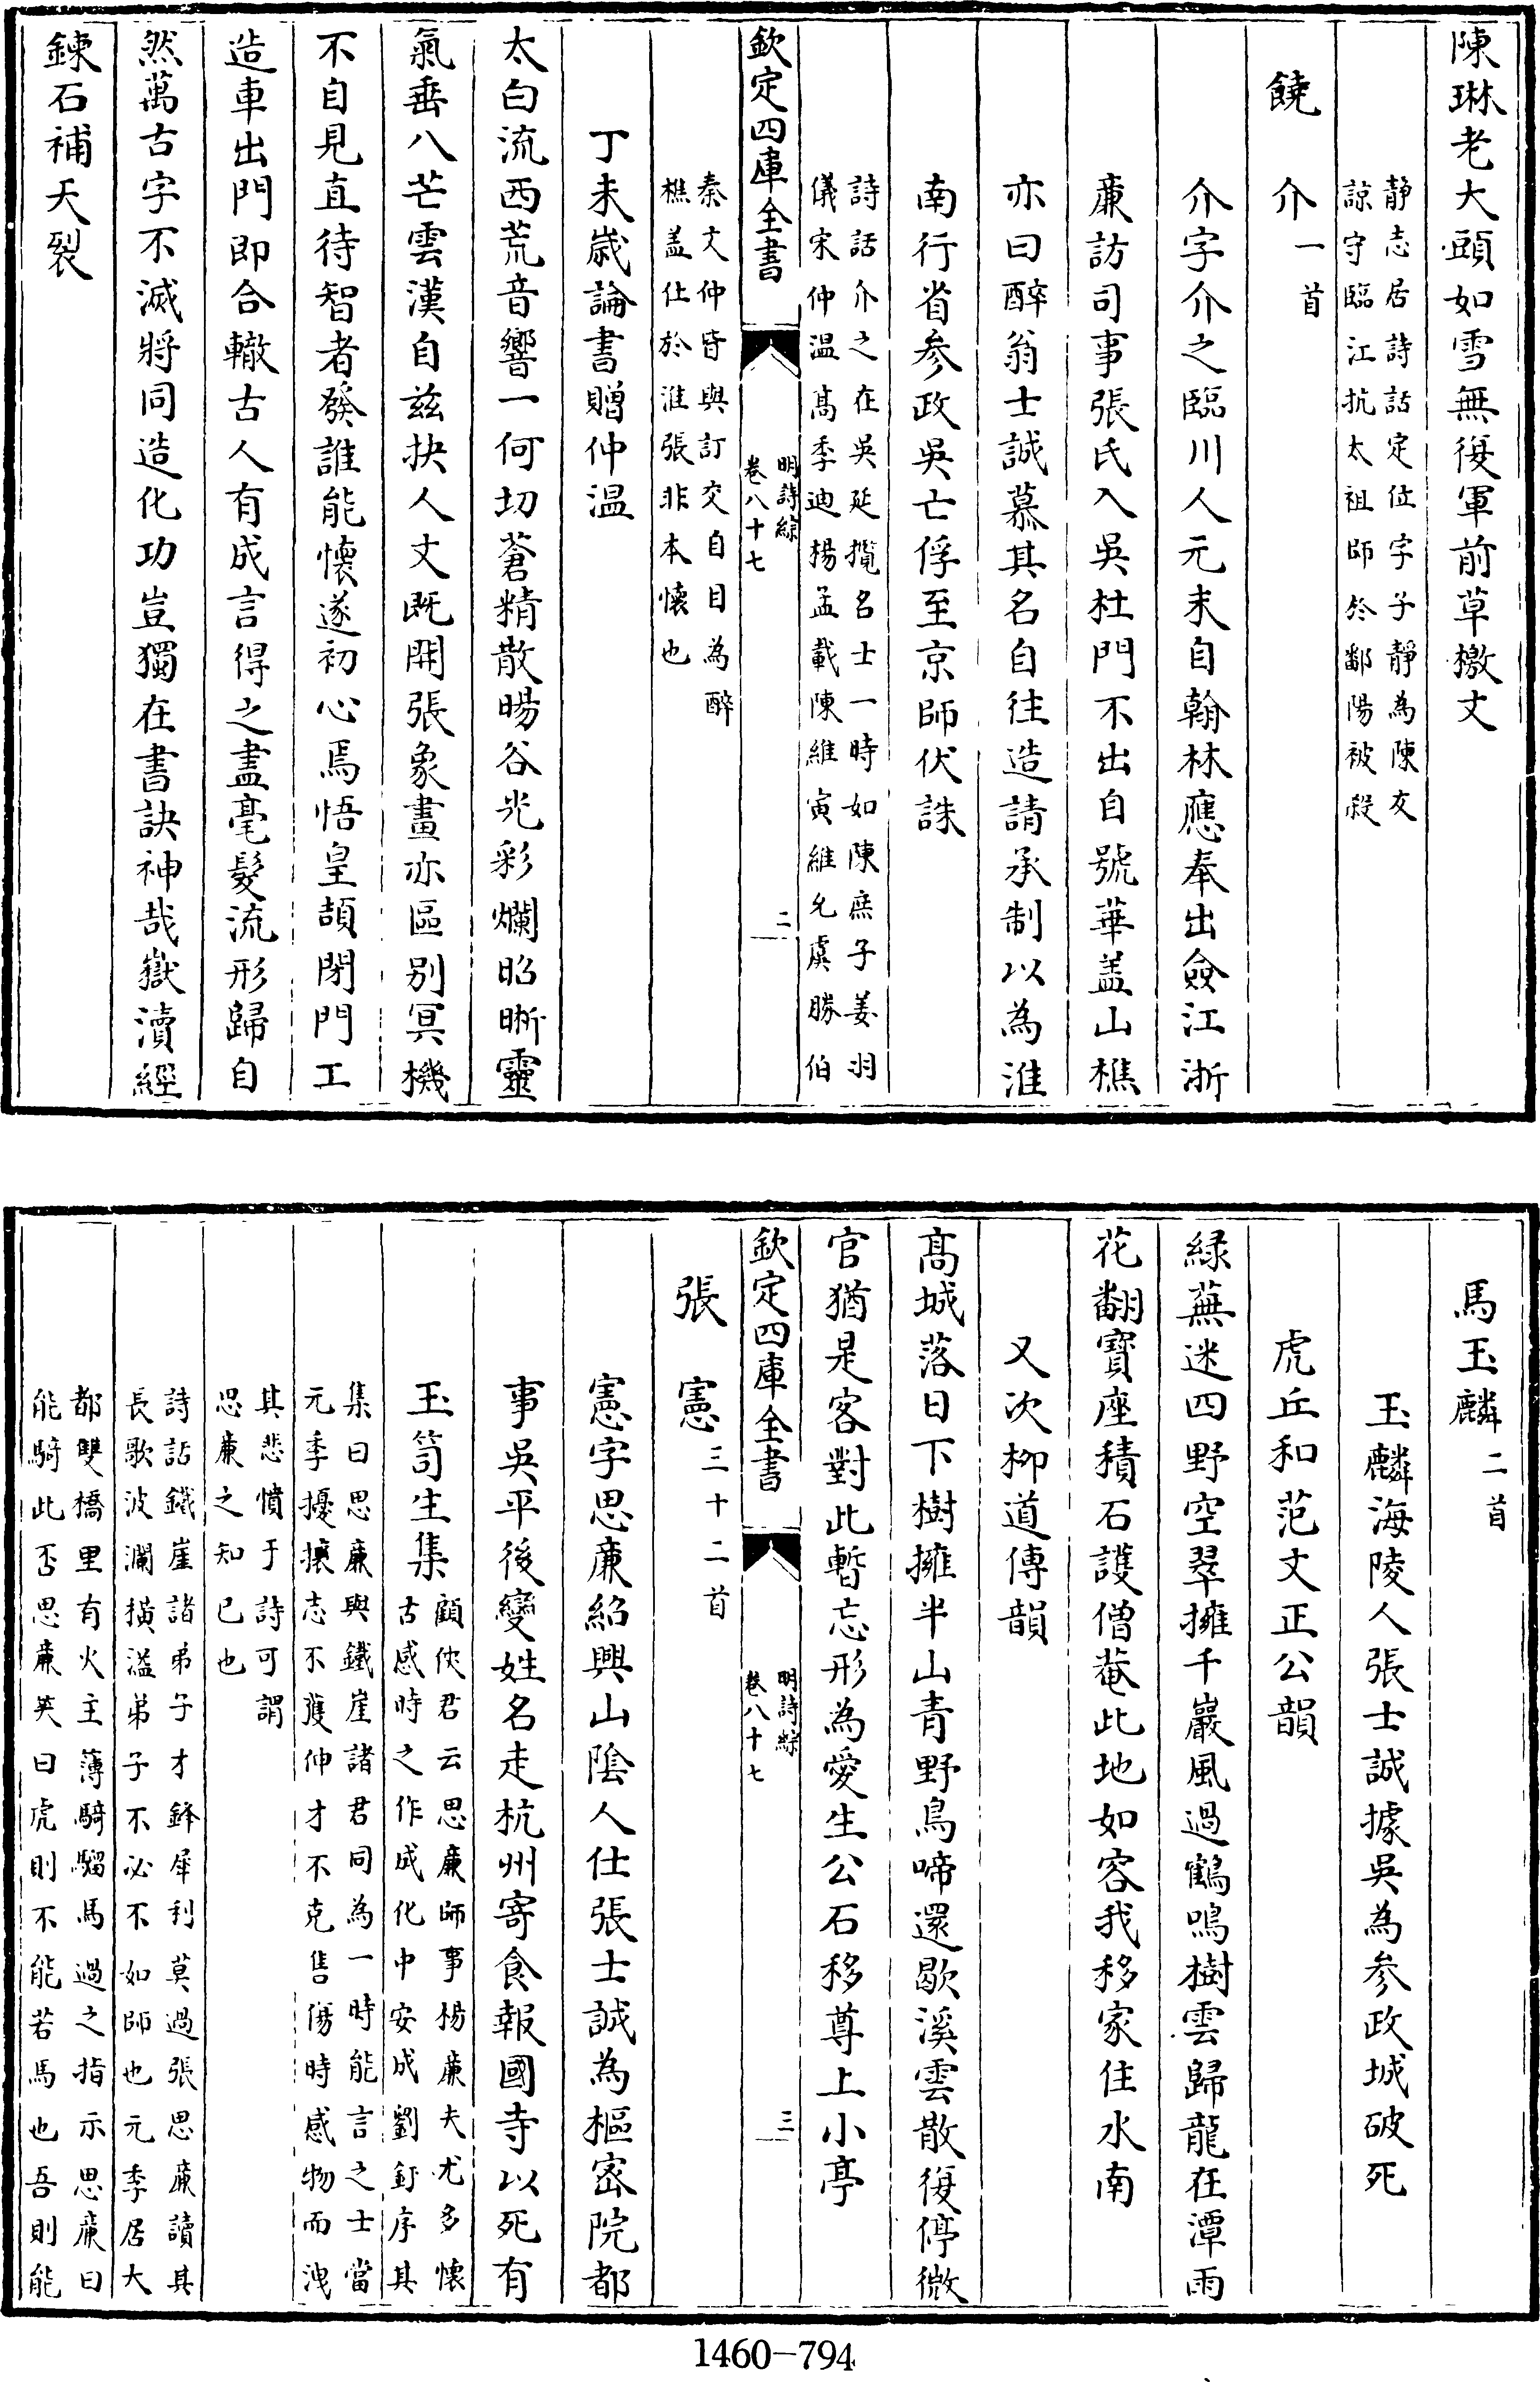 陳琳老大頭如雪無復軍前草檄文
靜志居詩話定位字子靜為陳友
諒守臨江抗太祖師於鄱陽被殺
饒介一首
介字介之臨川人元末自翰林應奉出僉江浙
廉訪司事張氏入吳杜門不出自號華盖山樵
亦曰醉翁士誠慕其名自往造請承制以為淮
南行省參政吳亡俘至京師伏誅
詩話介之在吳延攬名士一時如陳庶子姜羽
儀宋仲温髙季迪楊孟載陳維寅維允虞勝伯
欽定四庫全書
明詩綜
卷八十七
二
秦文仲皆與訂交自目為醉
樵盖仕於淮張非本懐也
丁未歲論書贈仲温
太白流西荒音響一何切蒼精散暘谷光彩爛昭晰靈
氣垂八芒雲漢自兹抉人文既開張象畫亦區别冥機
不自見直待智者發誰能懐遂初心焉悟皇頡閉門工
造車出門即合轍古人有成言得之盡毫髮流形歸自
然萬古字不滅將同造化功豈獨在書訣神哉嶽瀆經
鍊石補天裂
馬玉麟二首
玉麟海陵人張士誠據吳為參政城破死
虎丘和范文正公韻
緑蕪迷四野空翠擁千巖風過鶴鳴樹雲歸龍在潭雨
花翻寳座積石護僧菴此地如容我移家住水南
又次柳道傳韻
髙城落日下樹擁半山青野鳥啼還歇溪雲散復停微
官猶是客對此暫忘形為愛生公石移尊上小亭
欽定四庫全書
明詩綜
卷八十七
三
張憲三十二首
憲字思廉紹興山陰人仕張士誠為樞宻院都
事吳平後變姓名走杭州寄食報國寺以死有
玉笥生集
顧俠君云思廉師事楊廉夫尤多懐
古感時之作成化中安成劉釪序其
集曰思廉與鐵崖諸君同為一時能言之士當
元季擾攘志不獲伸才不克售傷時感物而洩
其悲憤于詩可謂
思廉之知已也
詩話鐵崖諸弟子才鋒犀利莫過張思廉讀其
長歌波瀾横溢弟子不必不如師也元季居大
都雙橋里有火主薄騎騮馬過之指示思廉曰
能騎此否思廉笑曰虎則不能若馬也吾則能
1460-794